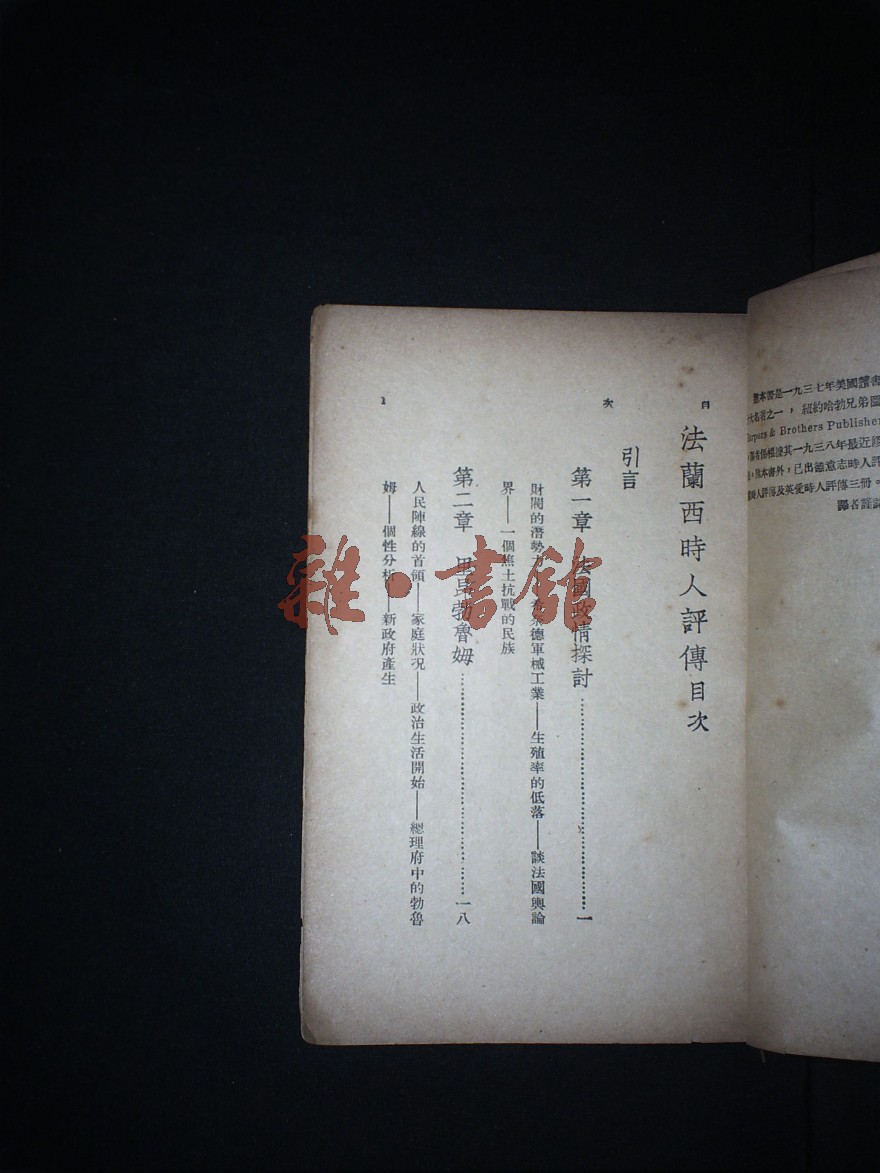 本書是一九三七年美國讀書
大名著之一，紐約哈勃兄弟圖
& Brothers Publisher
係根據其一九三八年最近
本書外，已出德意志時人評
評傳及英愛時人評傳三冊。
譯者謹誌
目次
法蘭西時人評傳目次
引言
第一章 法國政情探討……一
財閥的潛勢力——德軍械工業——生殖率的低落——談法國輿論
界——一個焦土抗戰的民族
第二章 里昂勃魯姆……一八
人民陣線的首領——家庭狀況——政治生活開始——總理府中的勃魯
姆——個性分析——新政府產生
1
雜·書館